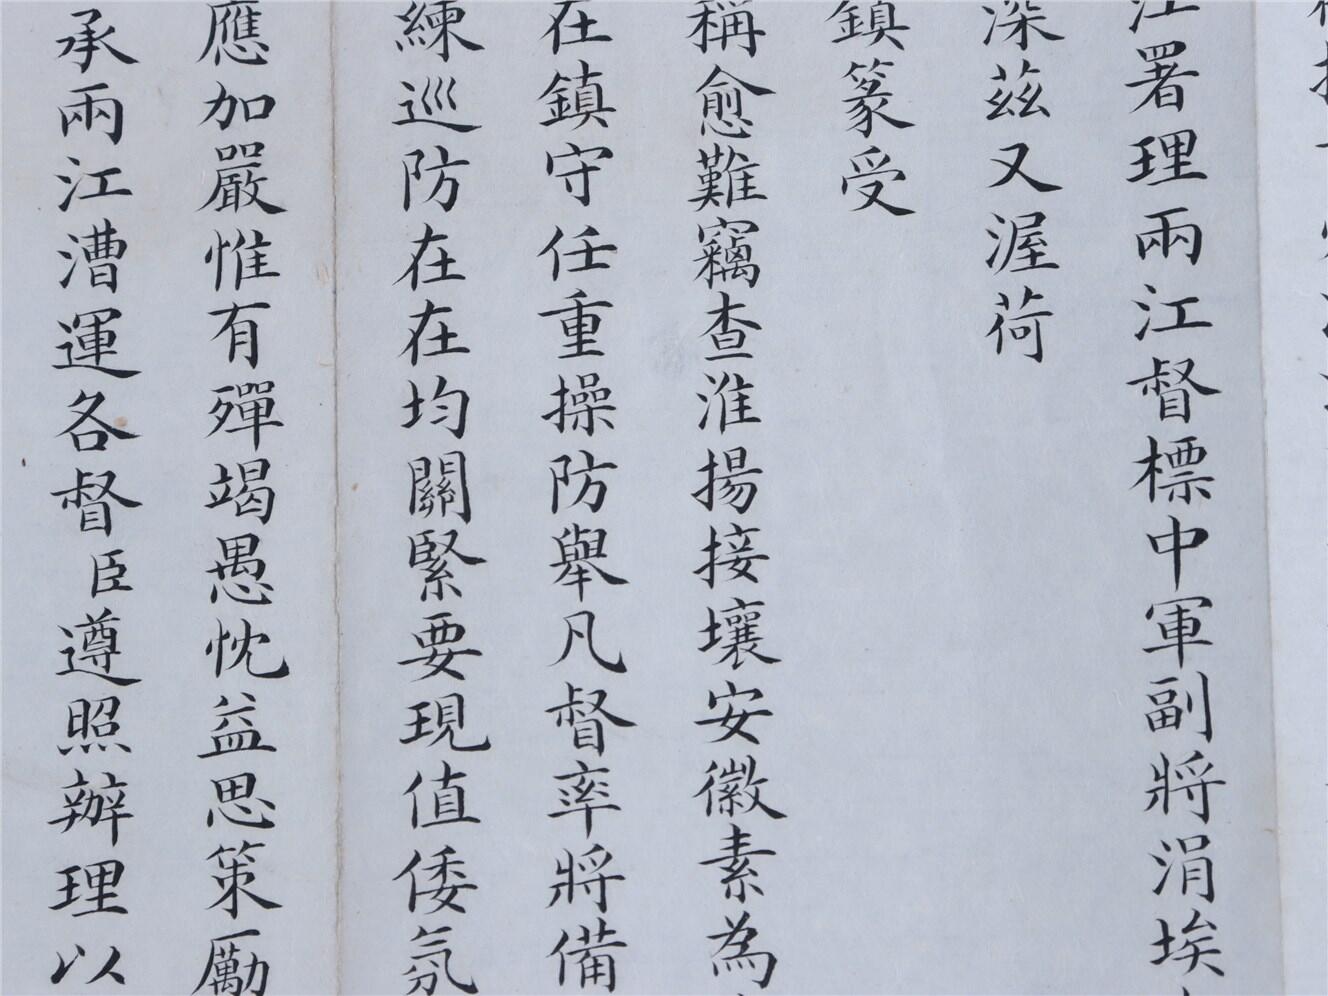 江署理兩江督標中軍副將涓埃
深茲又渥荷
鎮篆受
稱愈難竊查淮揚接壤安徽素為
在鎮守任重操防舉凡督率將備
練巡防在在均關緊要現值倭氛
應加嚴惟有殫竭愚忱益思策勵
承兩江漕運各督臣遵照辦理以